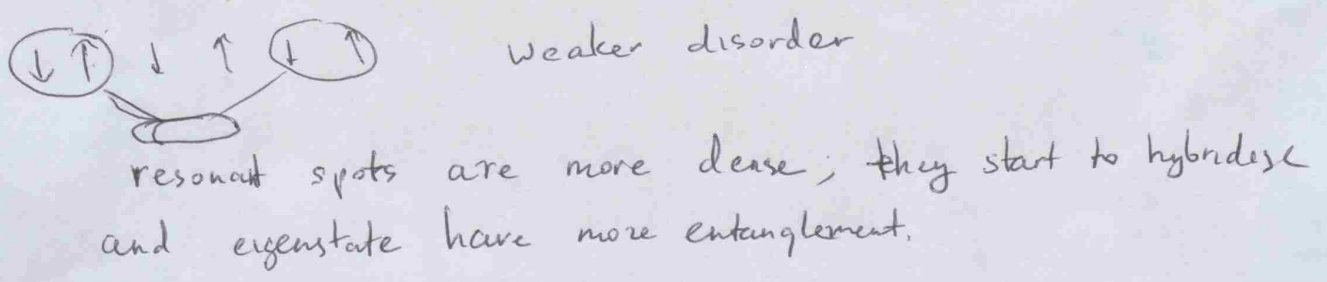 ↓ ↑ ↓ ↑ ↓ ↑ weaker disorder
resonant spots are more dense; they start to hybridise
and eigenstate have more entanglement.